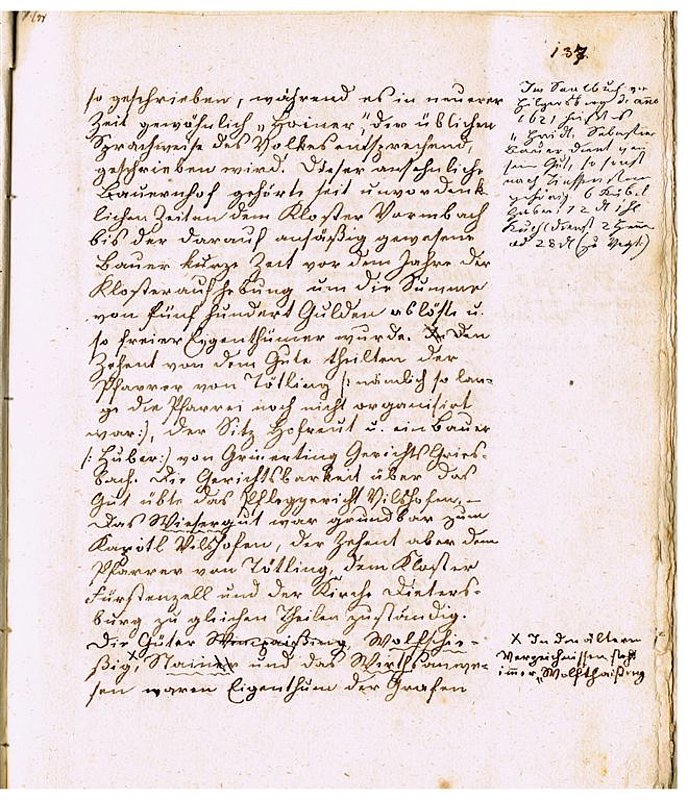 137.
so geschrieben, während es in neuerer
Zeit gewöhnlich „Hainer", der üblichen
Sprachweise des Volkes entsprechend,
geschrieben wird. Dieser ansehnliche
Bauernhof gehörte seit unvordenk-
lichen Zeiten dem Kloster Vormbach
bis der darauf ansäßig gewesene
Bauer kurze Zeit vor dem Jahre der
Klosteraufhebung um die Summe
von fünf hundert Gulden ablöste u.
so freier Eigenthümer wurde. Den
Zehent von dem Gute theilten der
Pfarrer von Tötling /: nämlich so lan-
ge die Pfarrei noch nicht organisirt
war:/, der Sitz Hofreut u. ein Bauer
/: Huber:/ von Gerichts Gries-
bach. Die Gerichtsbarkeit über das
Gut übte das Pfleggericht Vilshofen. –
Das Wiesergut war grundbar zum
Kapitl Vilshofen, der Zehent aber dem
Pfarrer von Tötling, dem Kloster
Fürstenzell und der Kirche Dieters-
burg zu gleichen Theilen zuständig.
Die Güter Wolfthei-
ßig, × Stainer und das Wirthsanwe-
sen waren Eigenthum der Grafen
Im Saalbuch
Hilgersberg de ano
1621 heißt es
Sebastian
Bauer dient von
sein Gut, so sonst
nach
gehörig 6 Kübel
Haber 12 dl
Kuchldienst 2
28 dl
× In den ältern
Verzeichnissen steht
immer „Wolfthaißing